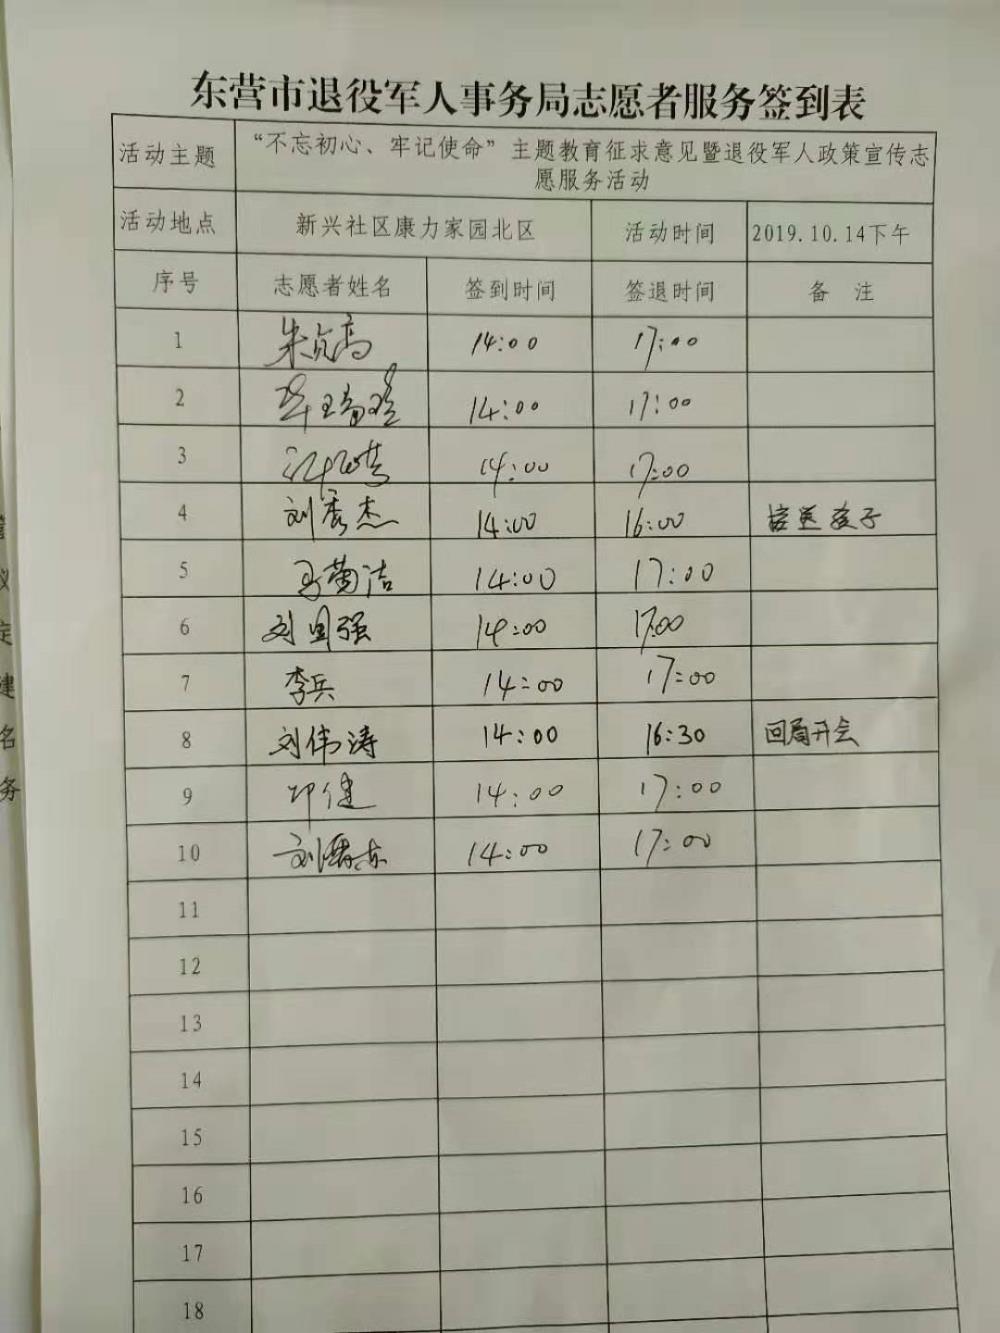 东营市退役军人事务局志愿者服务签到表
活动主题 “不忘初心、牢记使命”主题教育征求意见暨退役军人政策宣传志
愿服务活动
活动地点 新兴社区康力家园北区 活动时间 2019.10.14下午
序号 志愿者姓名 签到时间 签退时间 备 注
1 朱贞高 14:00 17:00
2 14:00 17:00
3 14:00 17:00
4 刘秀杰 14:00 16:00 接送孩子
5 马菊洁 14:00 17:00
6 刘国强 14:00 17:00
7 李兵 14:00 17:00
8 刘伟涛 14:00 16:30 回局开会
9 邱健 14:00 17:00
10 14:00 17:00
11
12
13
14
15
16
17
18
议
定
建
名
务